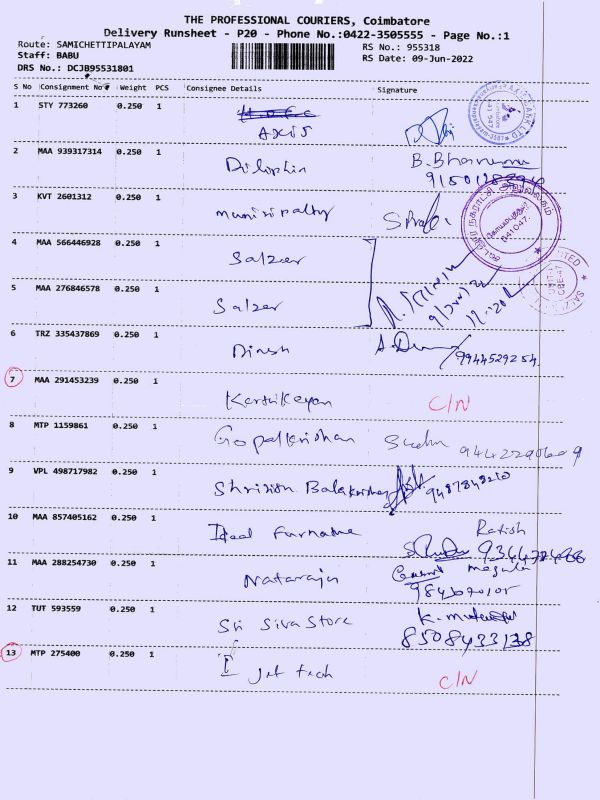 THE PROFESSIONAL COURIERS, Coimbatore
Delivery Runsheet - P20 - Phone No.:0422-3505555 - Page No.:1
Route: SAMICHETTIPALAYAM
RS No.: 955318
Staff: BABU
RS Date: 09-Jun-2022
DRS No.: DCJB95531801
S No Consignment No Weight PCS Consignee Details Signature
1 STY 773260 0.250 1
AXIS
2 MAA 939317314 0.250 1
3 KVT 2601312 0.250 1
4 MAA 566446928 0.250 1
Salzer
5 MAA 276846578 0.250 1
Salzer
6 TRZ 335437869 0.250 1
Dinesh
9944529254
7 MAA 291453239 0.250 1
Karthikeyan C/N
8 MTP 1159861 0.250 1
Gopalkrishan Sudha
9 VPL 498717982 0.250 1
9487848210
10 MAA 857405162 0.250 1
Ideal Ratish
11 MAA 288254730 0.250 1
Nataraju
12 TUT 593559 0.250 1
Sri Siva Store
8508433138
13 MTP 275400 0.250 1
Jet tech C/N
641047